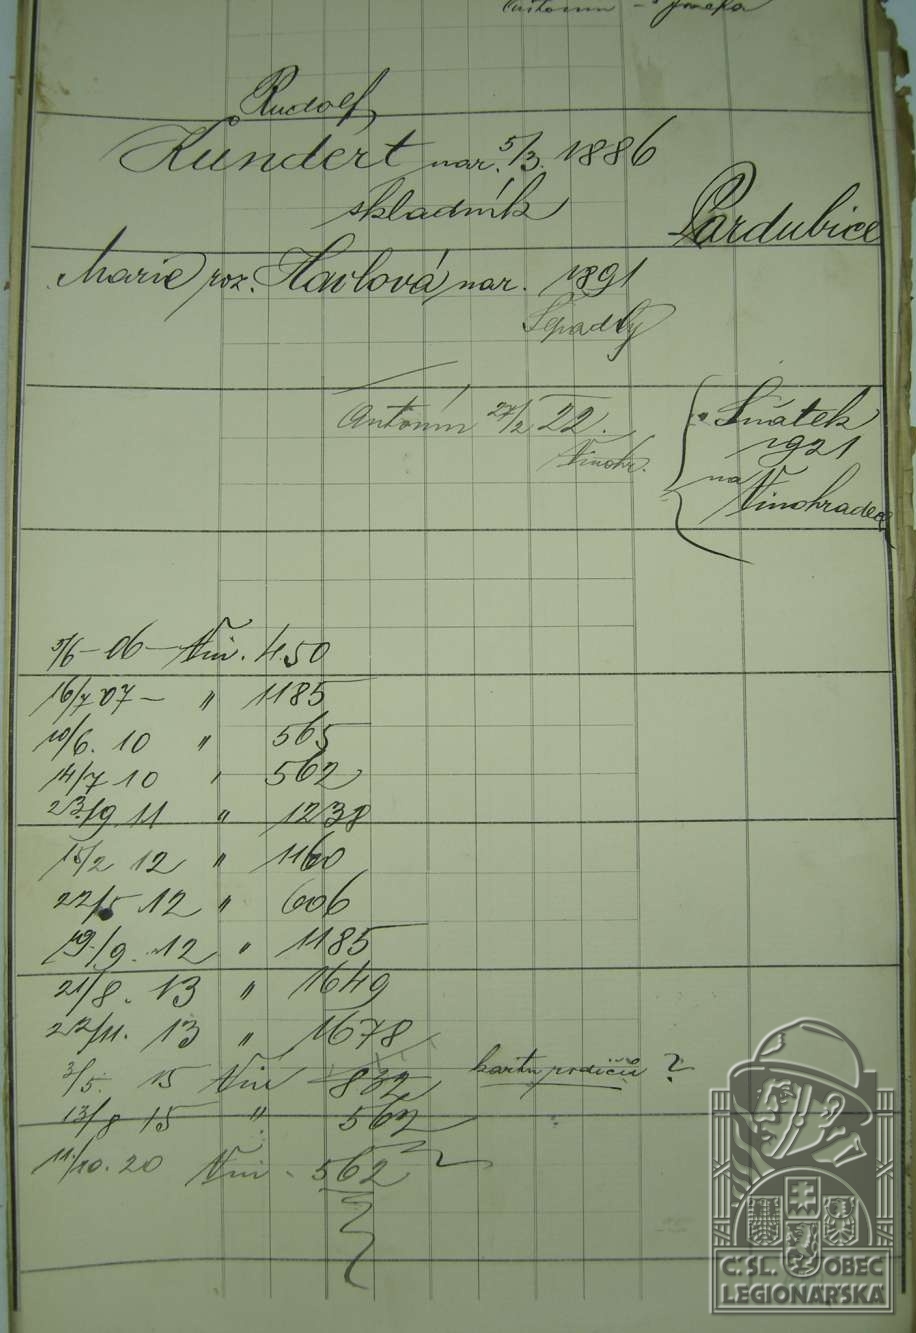 Antonín - Josefa
Rudolf
Kundért nar. 5/3. 1886
skladník
Pardubice
Marie roz. Havlová nar. 1891
Lepadly
Antonín 27/2 22.
Vinohr.
Sňatek
1921
na
Vinohradech
5/6 - 06 - Vin. 450
16/7 07 - " 1185
10/6. 10 " 565
14/7 10 " 562
23/9 11 " 1238
15/2 12 " 1160
22/5 12 " 606
19./9. 12 " 1185
21/8. 13 " 1649
22/11. 13 " 1678
3/5. 15 Vin 832
kartu rodičů ?
13/8 15 " 562
11./10. 20 Vin - 562
Č. SL. OBEC
LEGIONÁŘSKÁ